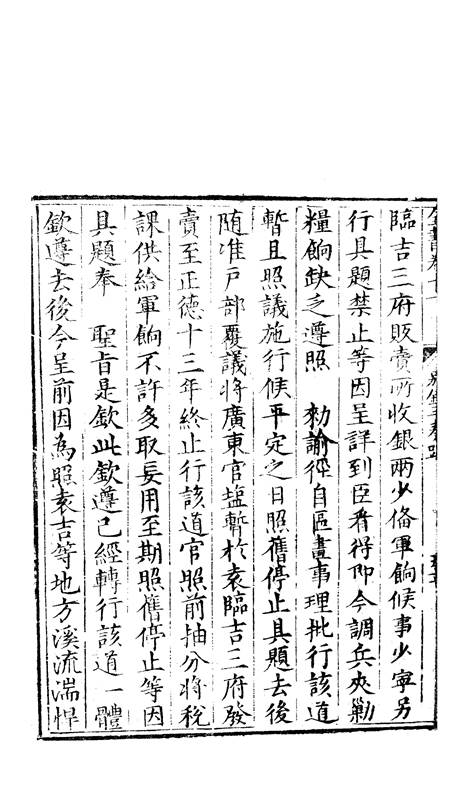 臨吉三府販賣所收銀兩少俻軍餉候事少寧另
行具題禁止等因呈詳到臣看得即今調兵夾勦
糧餉缺乏遵照　勑諭徑自區畫事理批行該道
暫且照議施行候平定之日照舊停止具題去後
随准户部覆議將廣東官塩暫於袁臨吉三府發
賣至正德十三年終止行該道官照前抽分將稅
課供給軍餉不許多取妄用至斯照舊停止等因
具題奉　聖旨是欽此欽遵已經轉行該道一體
欽遵去後今呈前因為照袁吉等地方溪流湍悍